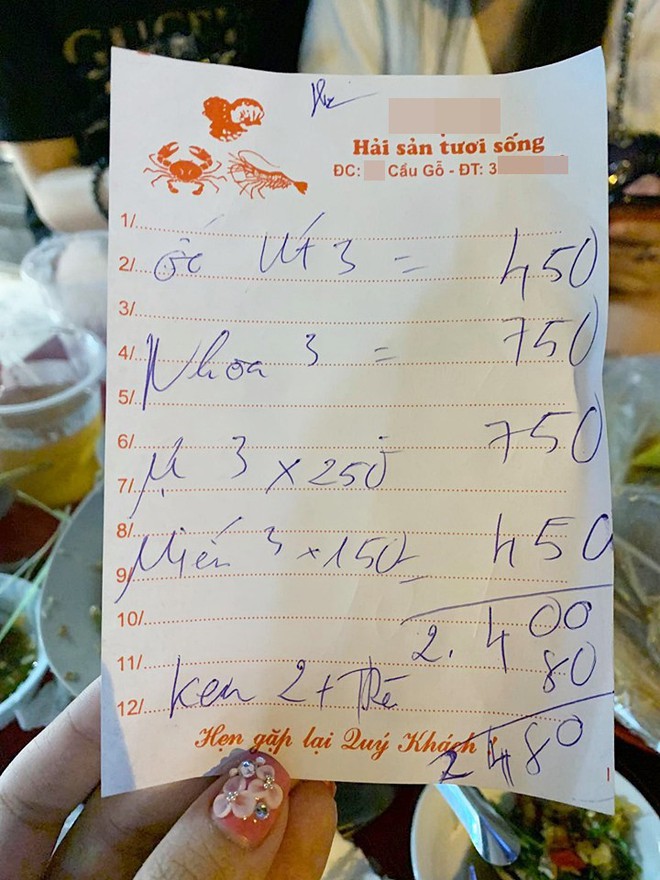 Hải sản tươi sống
ĐC: Cầu Gỗ - ĐT: 3
1/
2/ ốc út 3 = 450
3/
4/ Nhoa 3 = 750
5/
6/ 750
7/ 3 x 250
8/ 450
9/ Miến 3 x 150
10/ 2.400
11/ 80
12/ Ken 2 + Trè
Hẹn gặp lại Quý Khách !
2480